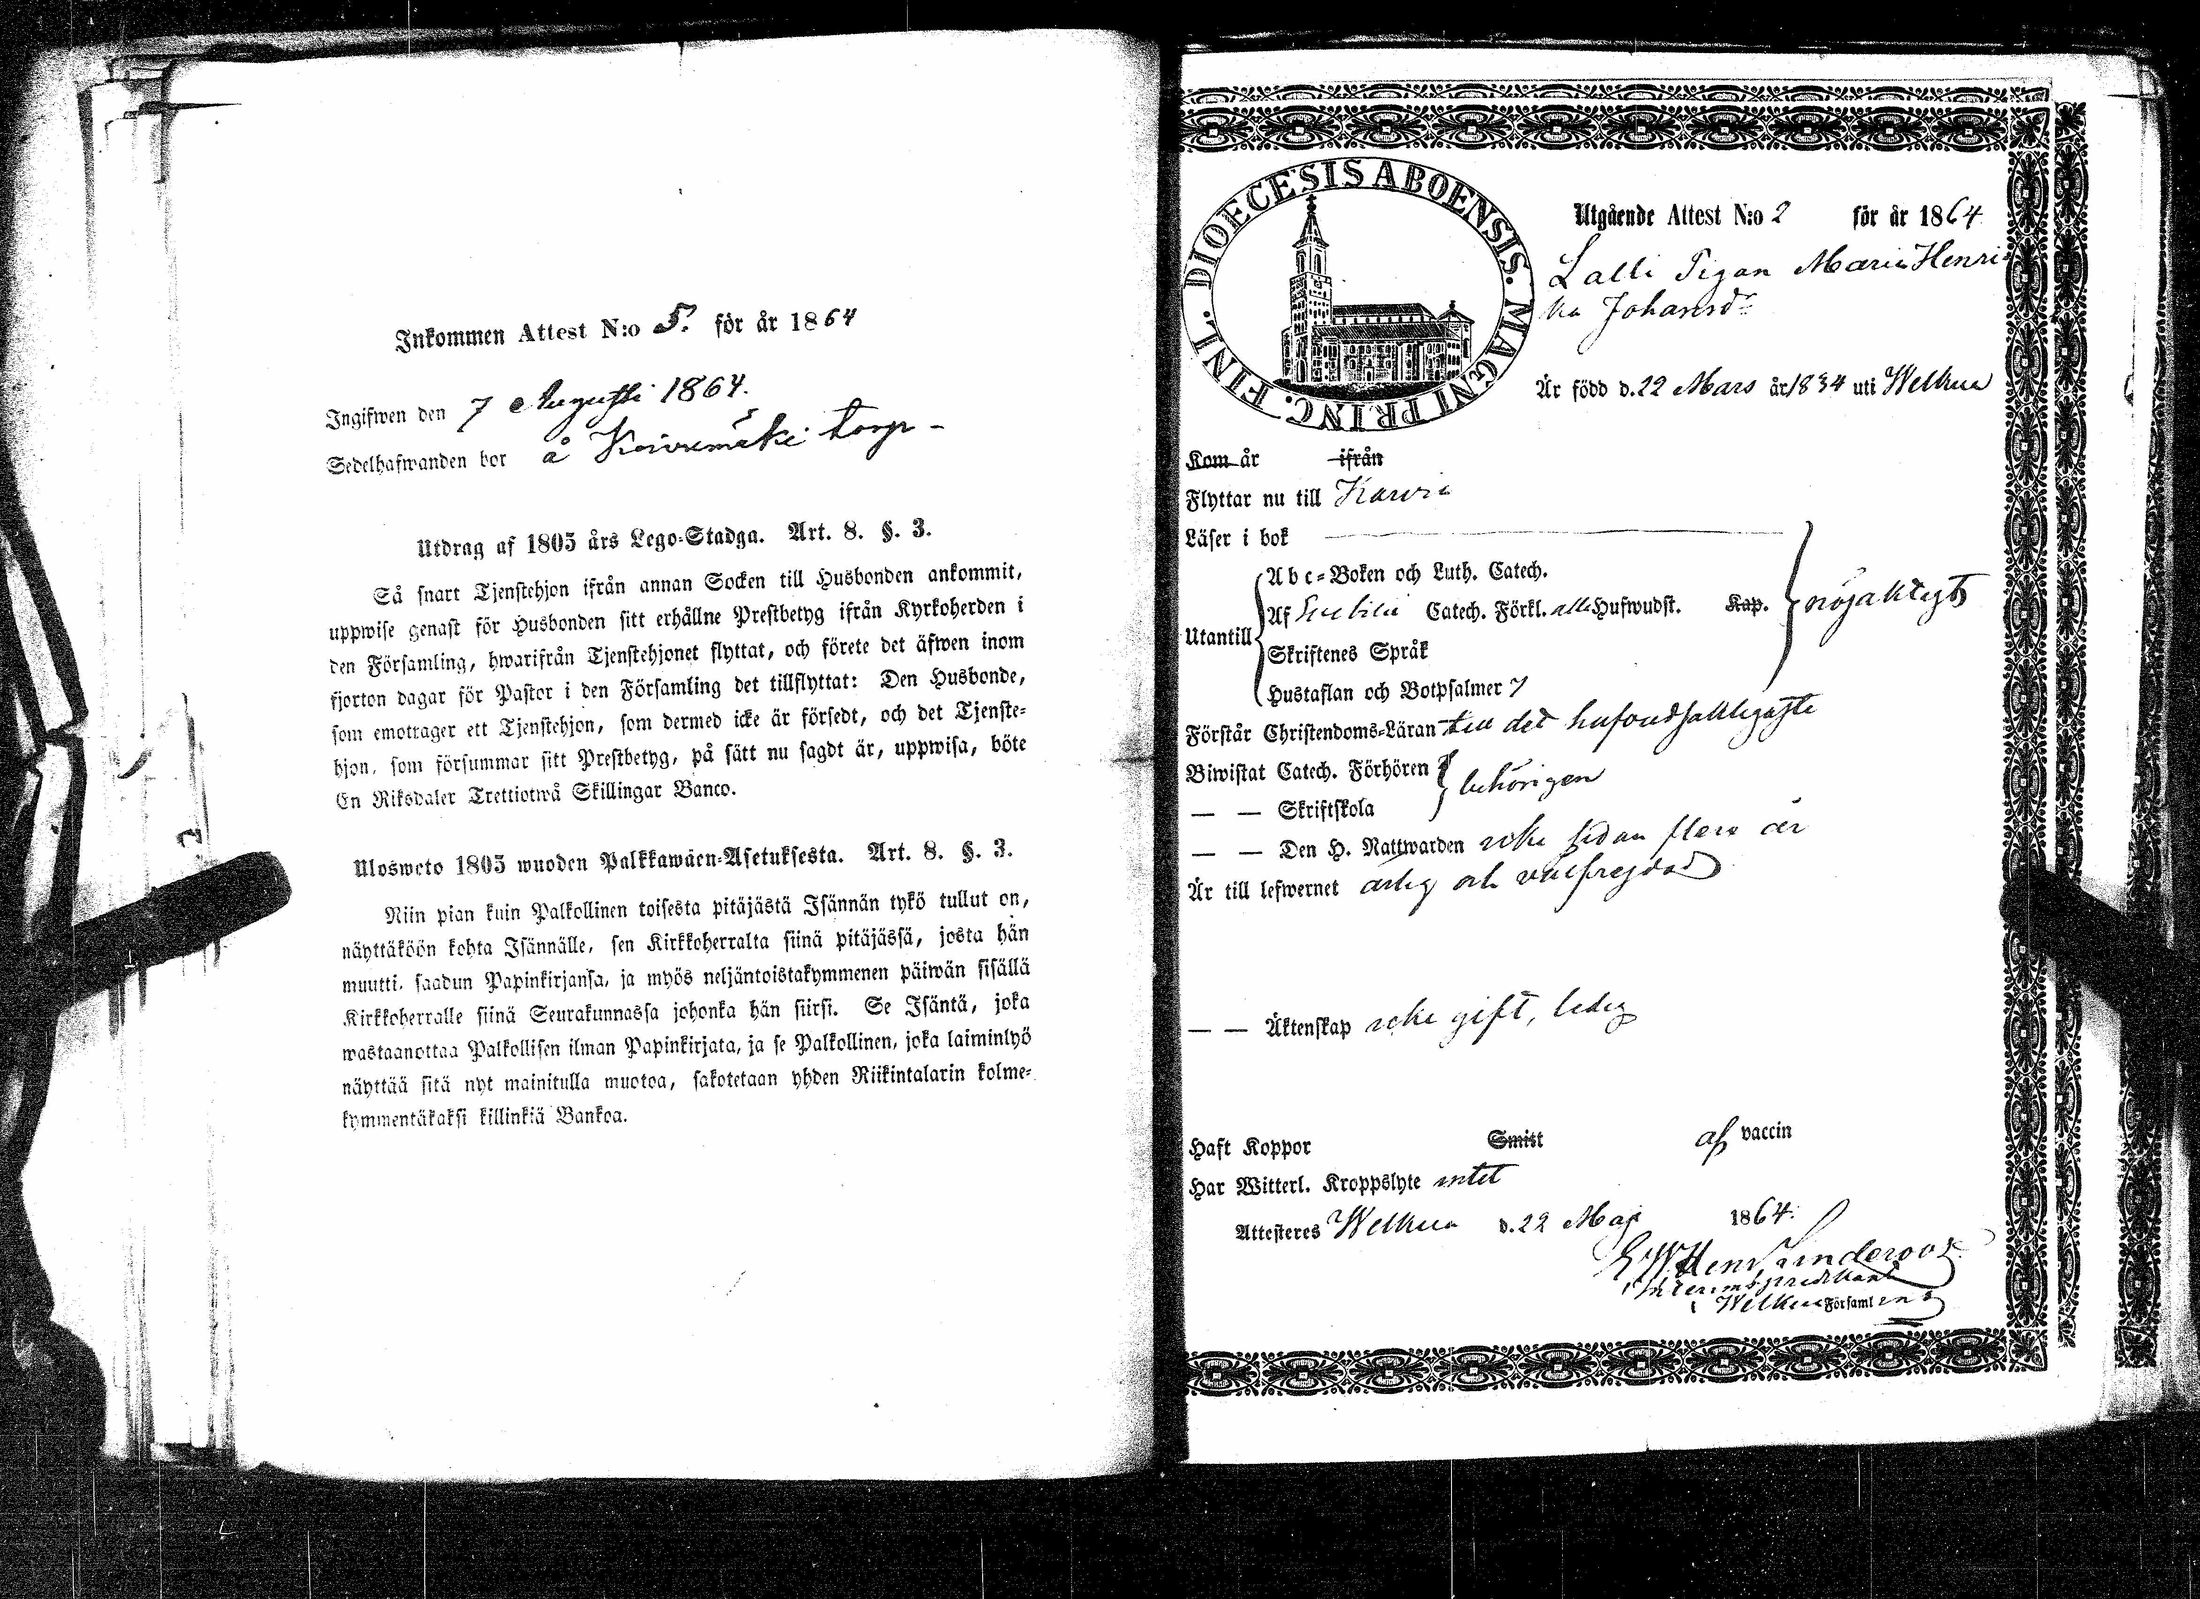 Inkommen Attest N:o 5. för år 1864
Ingifwen den 7 Augusti 1864.
Sedelhafwanden bor å Koivumäki torp -
Utdrag af 1805 års Lego-Stadga. Art. 8. §. 3.
Så snart Tjenstehjon ifrån annan Socken till Husbonden ankommit,
uppwise genast för Husbonden sitt erhållne Prestbetyg ifrån Kyrkoherden i
den Församling, hwarifrån Tjenstehjonet flyttat, och förete det äfwen inom
fjorton dagar för Pastor i den Församling det tillflyttat: Den Husbonde,
som emottager ett Tjenstehjon, som dermed icke är försedt, och det Tjenste-
hjon, som försummar sitt Prestbetyg, på sätt nu sagdt är, uppwisa, böte
En Riksdaler Trettiotwå Skillingar Banco.
Ulosweto 1805 wuoden Palkkawäen-Asetuksesta. Art. 8. §. 3.
Niin pian kuin Palkollinen toisesta pitäjästä Isännän tykö tullut on,
näyttäköön kohta Isännälle, sen Kirkkoherralta siinä pitäjässä, josta hän
muutti, saadun Papinkirjansa, ja myös neljäntoistakymmenen päiwän sisällä
Kirkkoherralle siinä Seurakunnassa johonka hän siirsi. Se Isäntä, joka
wastaanottaa Palkollisen ilman Papinkirjata, ja se Palkollinen, joka laiminlyö
näyttää sitä nyt mainitulla muotoa, sakotetaan yhden Riikintalarin kolme-
kymmentäkaksi killinkiä Bankoa.
DIOECESIS ABOENSIS. MAGNI PRINC. FINL.
Utgående Attest N:o 2 för år 1864
Lalli Pigan Maria Henri
ka Johansdr
Är född d. 22 Mars år 1834 uti Welkua
Kom år ifrån
Flyttar nu till Karvia
Läser i bok
Abc-Boken och Luth. Catech.
Utantill Af Catech. Förkl. alla Hufwudst. Kap. nöjaktigt
Skriftenes Språk
Hustaflan och Botpsalmer 7
Förstår Christendoms-Läran till det hufvudsakligaste
Biwistat Catech. Förhören behörigen
— — Skriftskola
— — Den H. Nattwarden icke sedan flere år
Är till lefwernet ärlig och välfrejdad
— — Äktenskap icke gift, ledig
Haft Koppor Smitt af vaccin
Har Witterl. Kroppslyte intet
Attesteres Welkua d. 22 Maji 1864.
Interimspredikant
i Welkua Församling